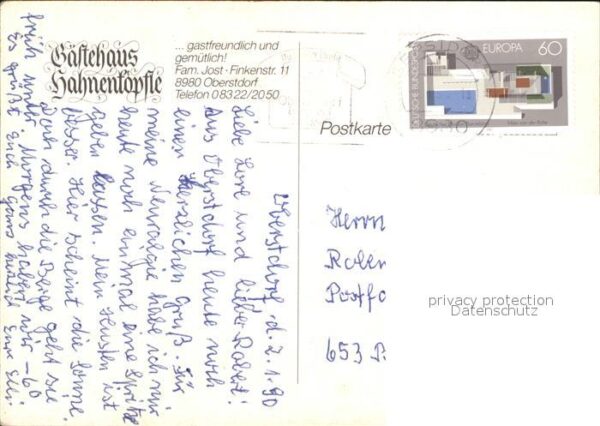 Gästehaus
Hahnenköpfle
... gastfreundlich und
gemütlich!
Fam. Jost · Finkenstr. 11
8980 Oberstdorf
Telefon 0 83 22/20 50
Postkarte
DEUTSCHE BUNDESPOST
EUROPA 60
Oberstdorf, d. 2.1.90
Liebe Lore und lieber Robert!
Aus Oberstdorf heute noch
einen herzlichen Gruß. Für
meine Neuralgie habe ich mir
heute noch einmal eine Spritze
geben lassen. Mein Husten ist
besser. Hier scheint die Sonne.
Doch durch die Berge geht sie
früh unter. Morgens haben wir -6°
Es grüßt Euch ganz herzl. Eure Elli.
Herrn
Rober
Postfa
653
privacy protection
Datenschutz